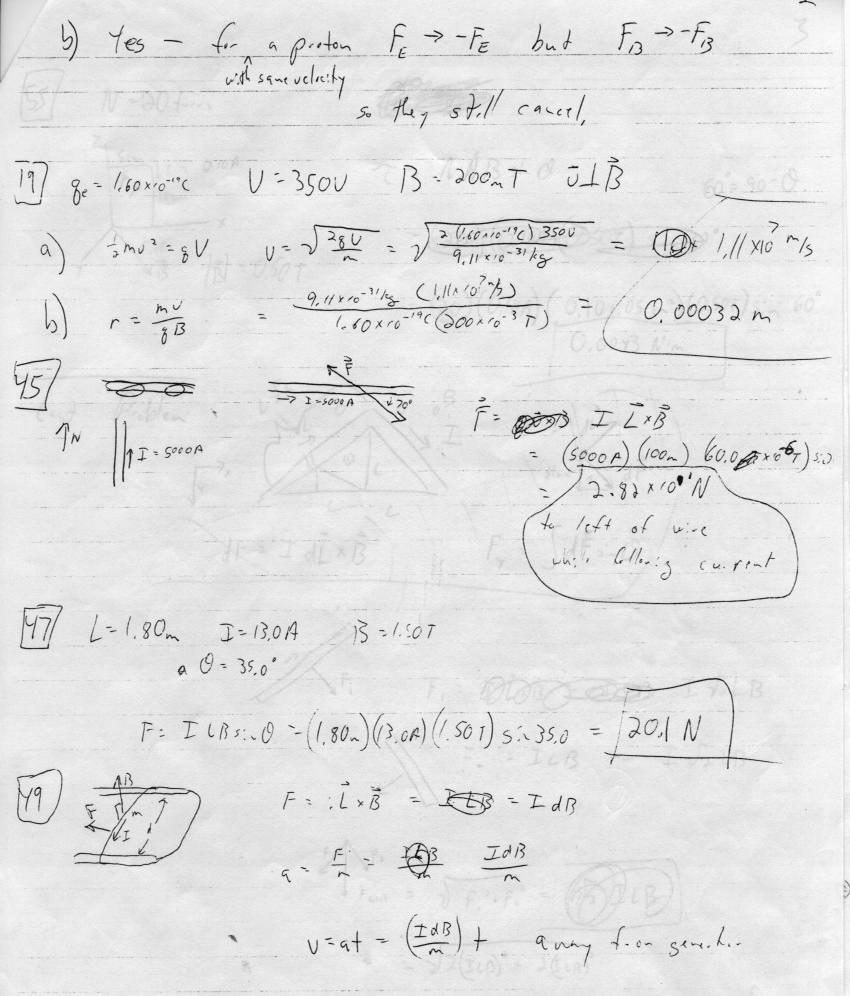 b) Yes – for a proton F_E → -F_E but F_B → -F_B
with same velocity
so they still cancel.
19 q_e = 1.60×10^-19 C V = 350V B = 200mT v⃗⊥B⃗
a) ½mv² = qV v = √(2qV/m) = √(2(1.60×10^-19C)350V / 9.11×10^-31kg) = 1.11×10^7 m/s
b) r = mv/qB = 9.11×10^-31kg (1.11×10^7 m/s) / 1.60×10^-19C (200×10^-3T) = 0.00032 m
45
F⃗
→ I=5000A ↓70°
↑N
↑ I = 5000A
F⃗ = I L⃗×B⃗
= (5000A)(100m)(60.0×10^-6T) sin
= 2.82×10^1 N
to left of wire
while following current
47 L=1.80m I=13.0A B=1.50T
a θ = 35.0°
F = ILBsinθ = (1.80m)(13.0A)(1.50T) sin35.0 = 20.1 N
49
B
F m
I d
F = iL⃗×B⃗ = ILB = IdB
a = F/m = ILB/m IdB/m
v=at = (IdB/m)t away from generator